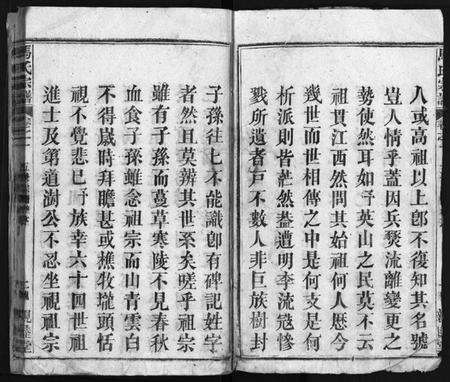 人或高祖以上卽不復知其名號
豈人情乎蓋因兵燹流離變更之
勢使然耳如予英山之民莫不云
祖貫江西然問其始祖何人厯今
幾世而世相傳之中是何支是何
析派則皆茫然葢遭明季流寇
戮所遺者戸不數人非巨族樹封
子孫往七不能識卽有碑記姓字
者然且莫辨其世系矣嗟乎祖宗
雖有子孫而蔓草寒陵不見春秋
血食子孫雖念祖宗而山青雲白
不得歲時拜瞻甚或樵牧壠頭恬
視不覺悲已予族幸六十四世祖
進士及第道澍公不忍坐視祖宗
馬氏宗譜